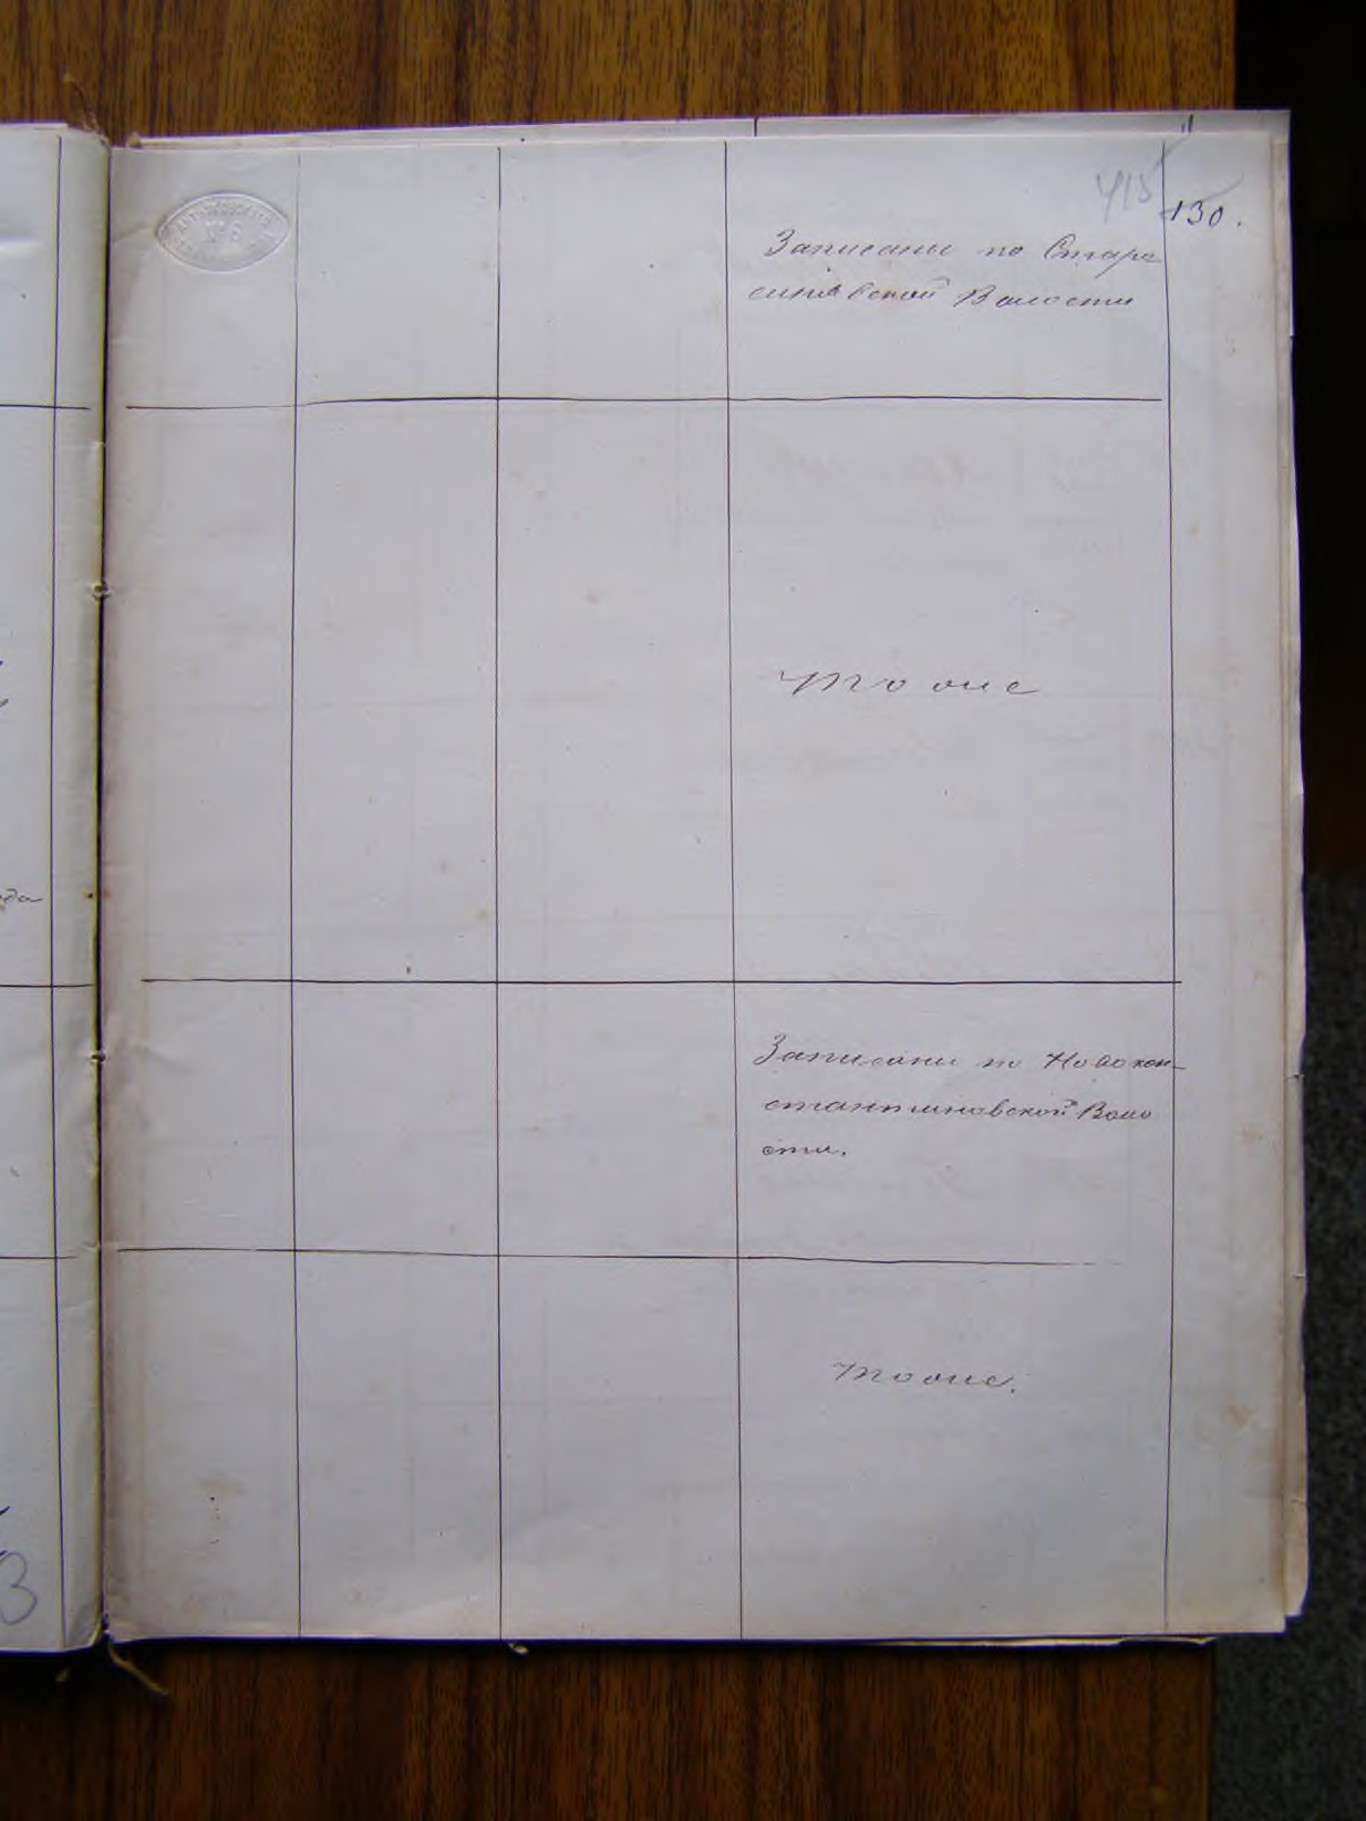 415
130.
Записаны по Старо
синявской Волости
тоже
Записаны по Новокон-
стантиновской Воло
сти.
тоже.
№ 6
3